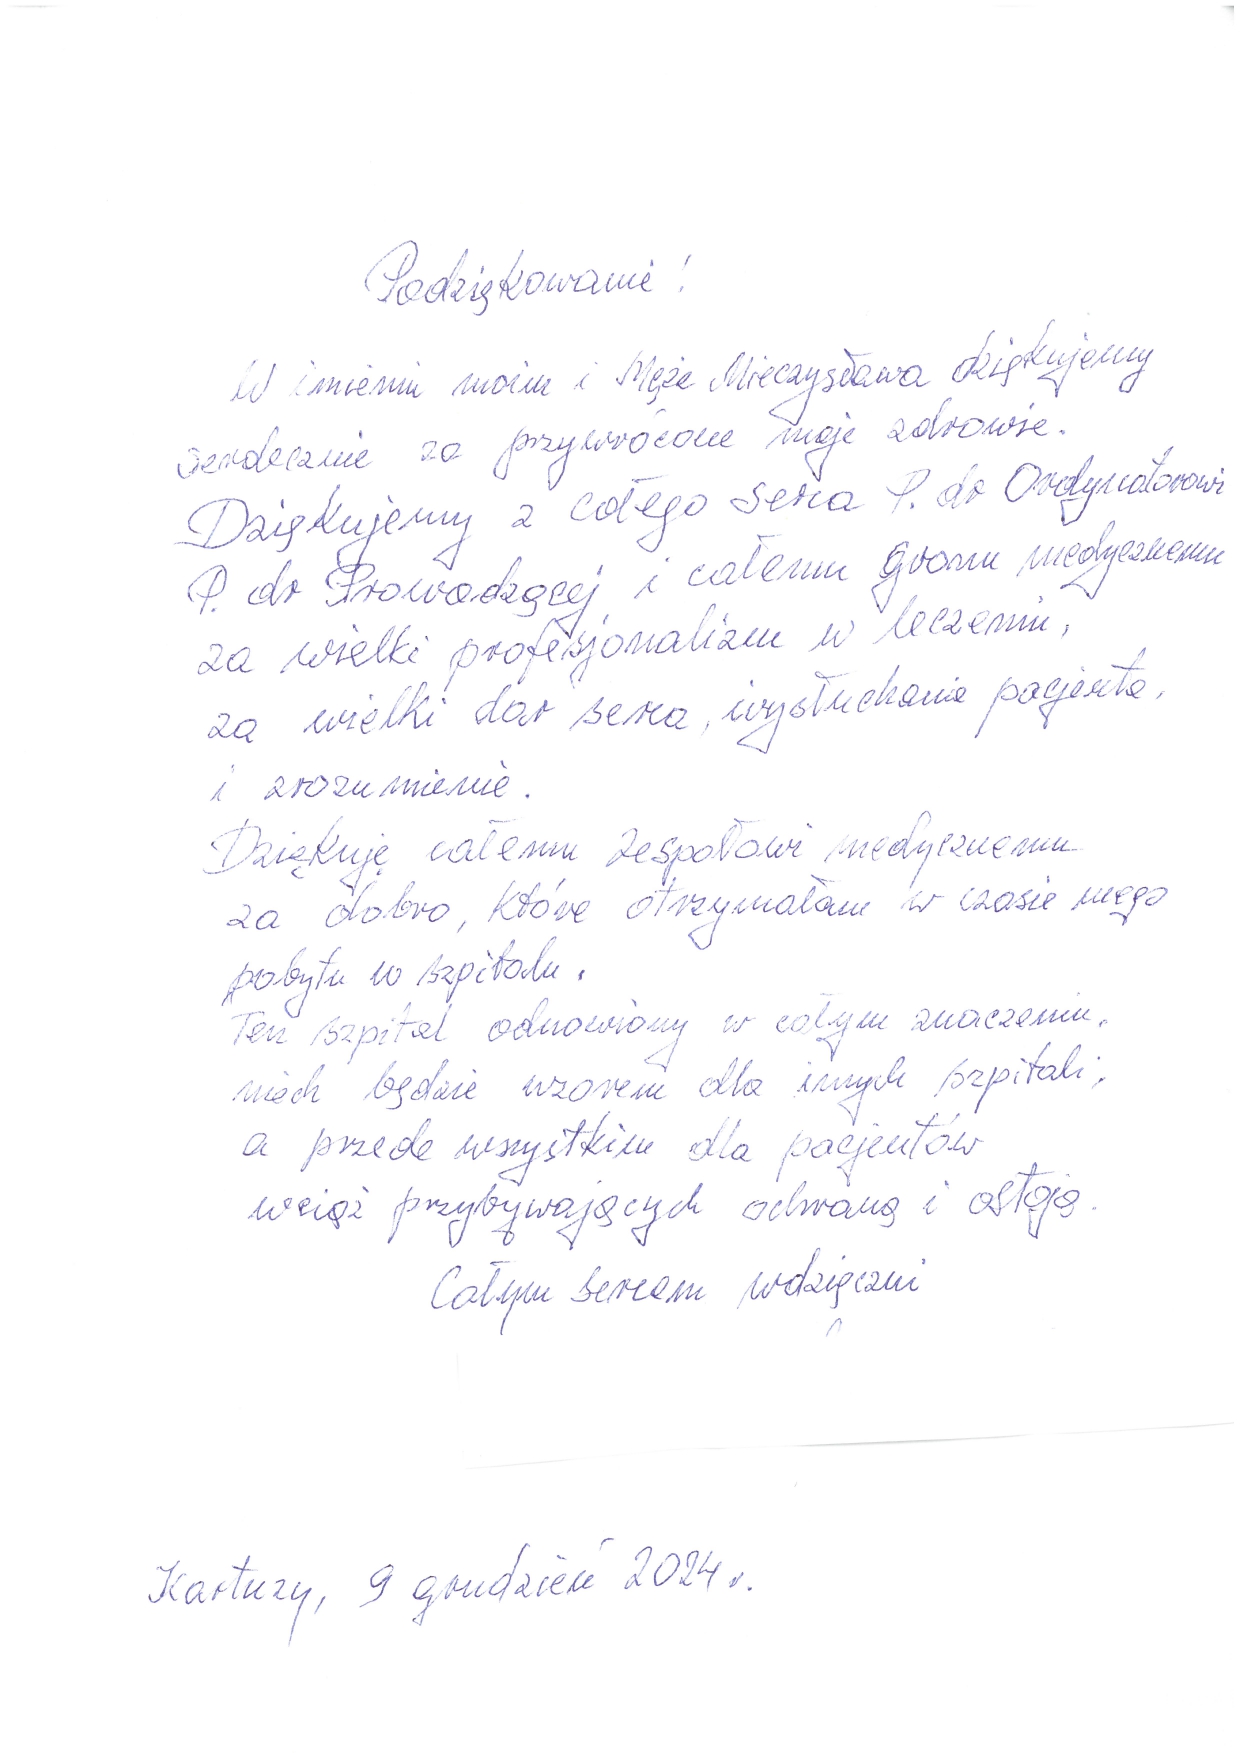 Podziękowanie!
W imieniu moim i Męża Mieczysława dziękujemy
serdecznie za przywrócone moje zdrowie.
Dziękujemy z całego serca P. dr Ordynatorowi
P. dr Prowadzącej i całemu gronu medycznemu
za wielki profesjonalizm w leczeniu,
za wielki dar serca, wysłuchania pacjenta,
i zrozumienie.
Dziękuję całemu zespołowi medycznemu
za dobro, które otrzymałam w czasie mego
pobytu w szpitalu.
Ten szpital odnowiony w całym znaczeniu,
niech będzie wzorem dla innych szpitali,
a przede wszystkim dla pacjentów
wciąż przybywających ochroną i ostoją.
Całym sercem wdzięczni
Kartuzy, 9 grudzień 2024 r.